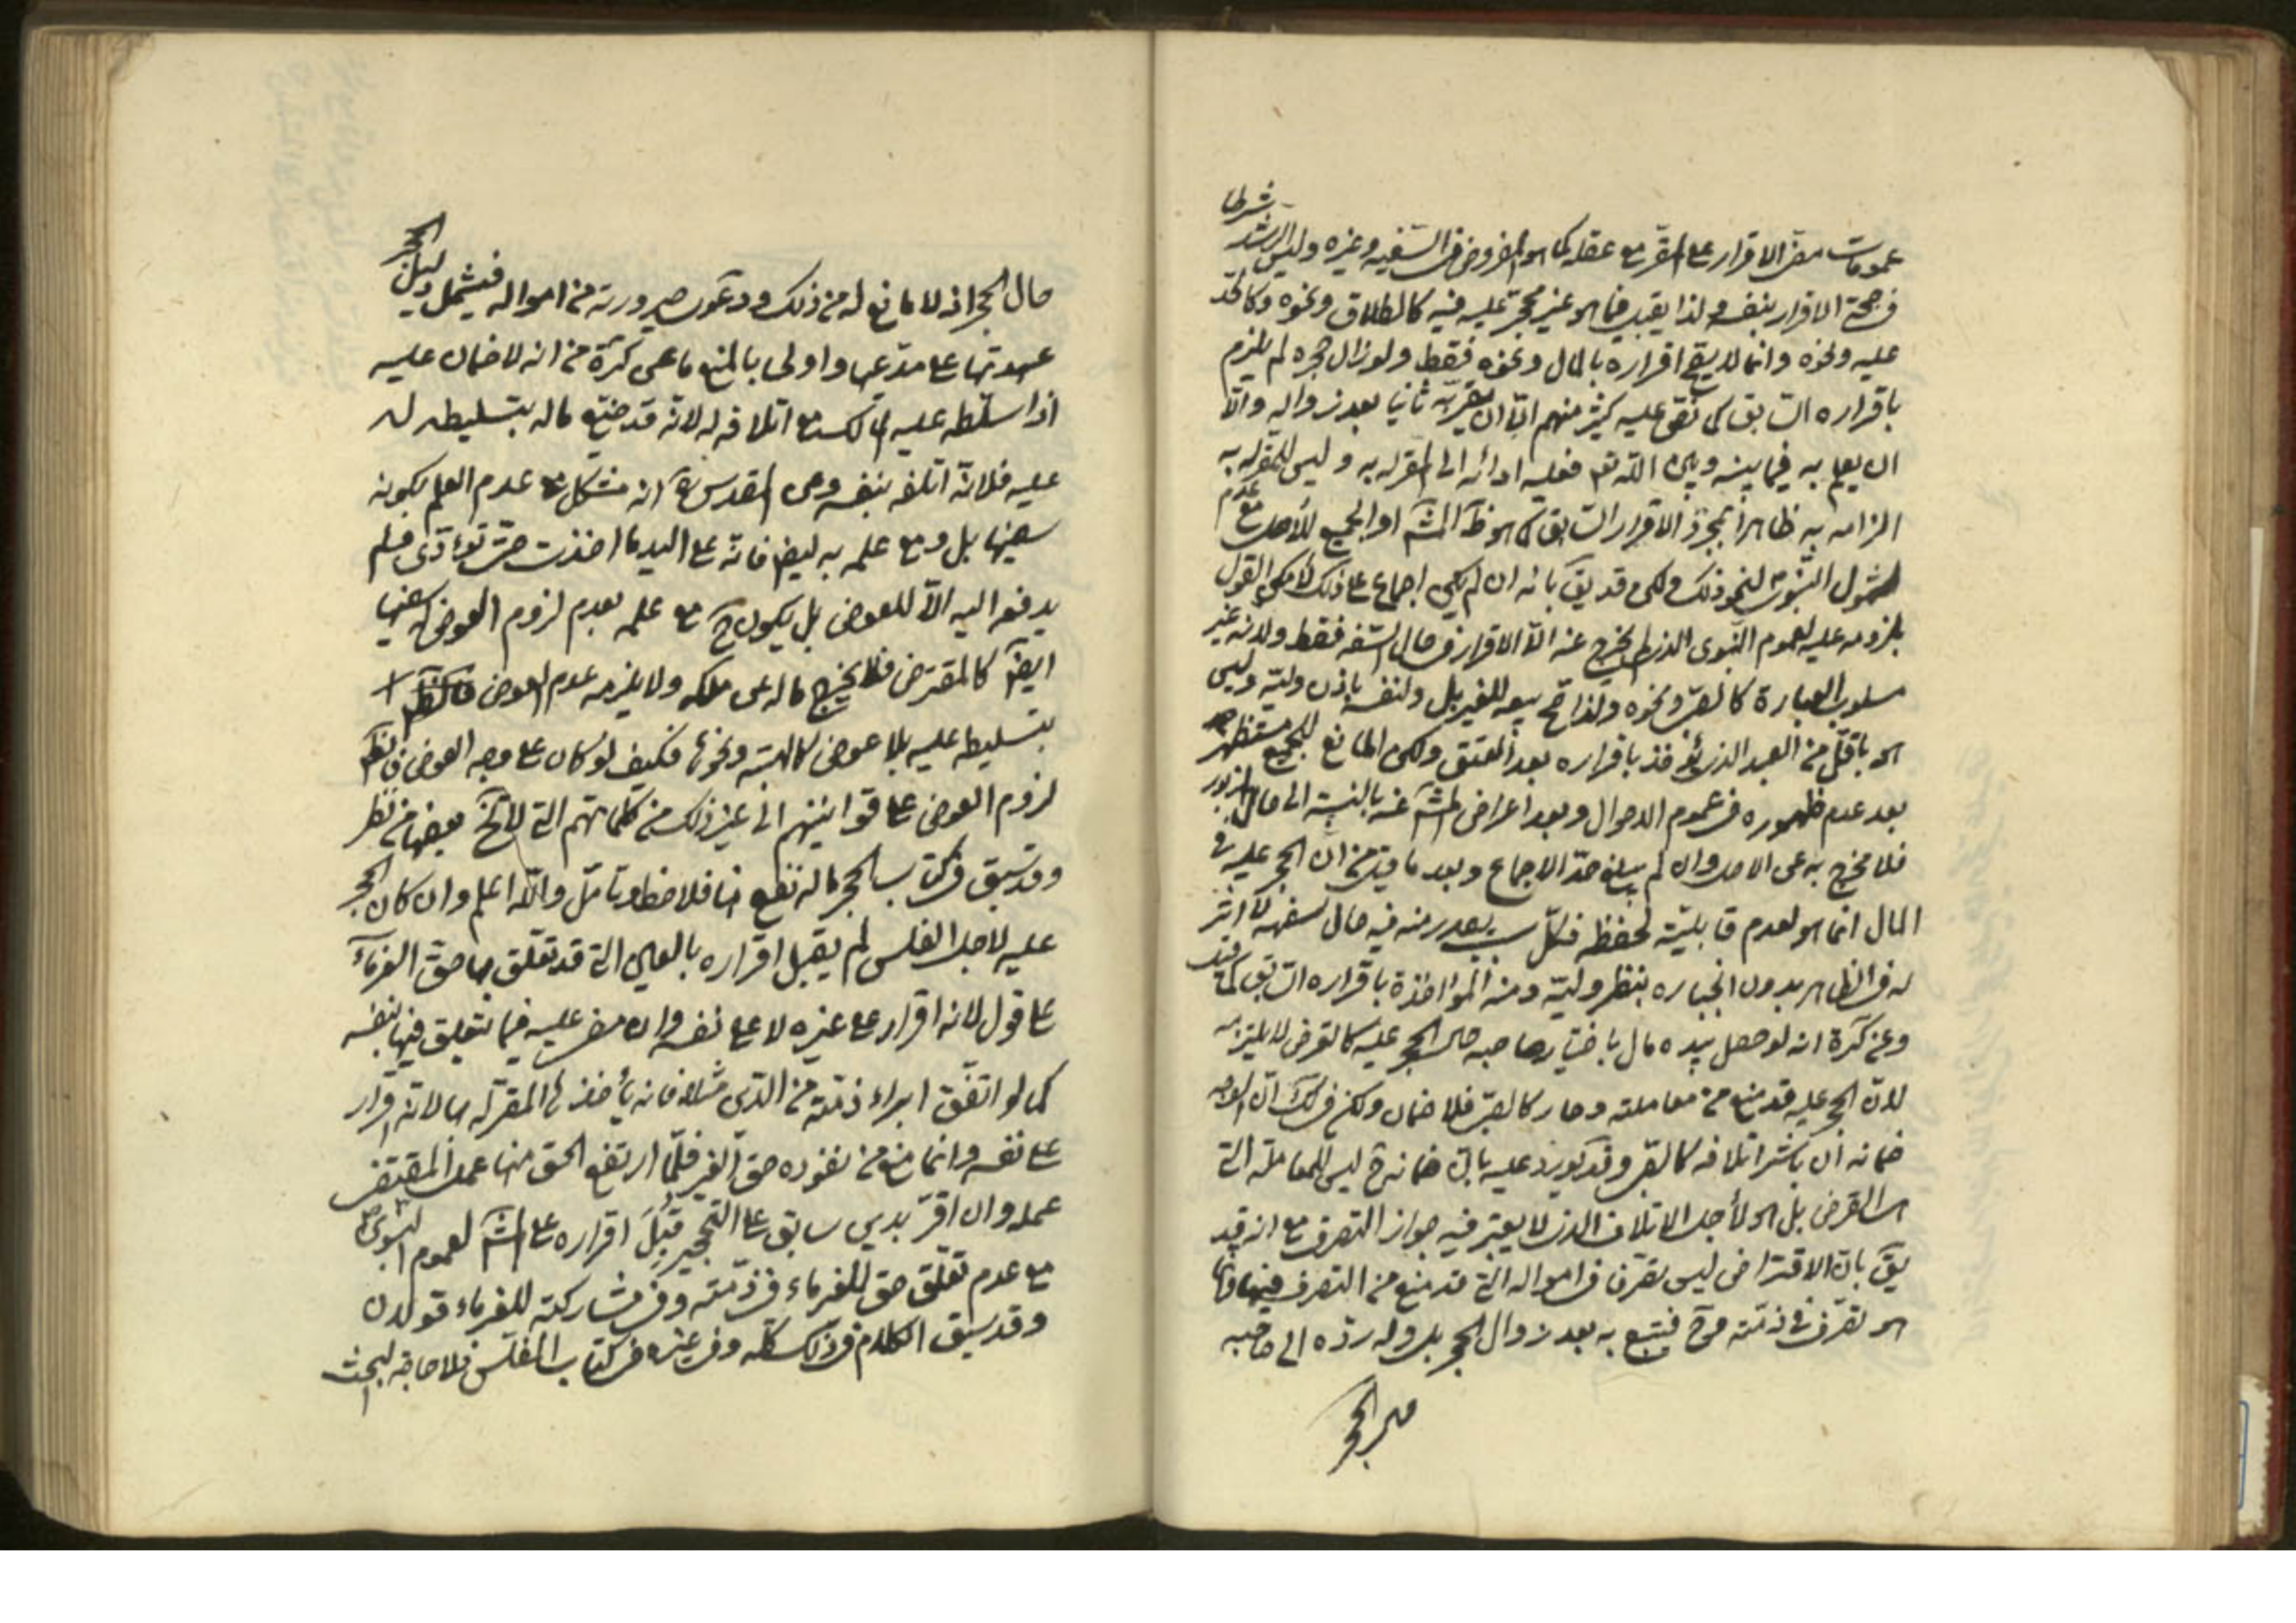 عمومات مضي الاقرار على المقر مع عقله كما هو المفروض في السفيه وغيره وليس الرشد شرطا
في صحة الاقرار بنفسه ولذا يقبل فيما هو غير محجر عليه فيه كالطلاق ونحوه وكالحد
عليه ونحوه وانما لا يقبل اقراره بالمال ونحوه فقط ولو زال حجره لم يلزم
باقراره السابق كما نص عليه كثير منهم الا ان يقر به ثانيا بعد زواله والا
ان يعلم به فيما بينه وبين الله تعه فعليه ادائه الى المقر له به وليس للمقر له به
الزامه به ظاهرا بمجرد الاقرار السابق كما هو ظ المش او الجميع للأصل مع عدم
شمول النبوي لنحو ذلك ولكن قد يق بانه ان لم يكن اجماع على ذلك لأمكن القول
بلزومه عليه لعموم النبوي الذي لم يخرج عنه الا الاقرار في حال السفه فقط ولانه غير
مسلوب العبارة كالصبي ونحوه ولذا صح بيعه للغير بل ولنفسه باذن وليه وليس
هو باقل من العبد الذي يؤخذ باقراره بعد العتق ولكن المانع للجميع مستظهر
بعد عدم ظهوره في عموم الاحوال وبعد اعراض المش عنه بالنسبة الى حال المزبور
فلا مخرج به عن الاصل وان لم يبلغ حد الاجماع وبعد ما قيل من ان الحجر عليه في
المال انما هو لعدم قابليته لحفظه فكل سبب يصدر منه فيه حال سفهه لا اثر
له في الظاهر بدون انجباره بنظر وليه ومنه المؤاخذة باقراره السابق كما قيل
وعن كرة انه لو حصل بيده مال باختيار صاحبه حال الحجر عليه كالقرض لا يلزمه
لان الحجر عليه قد منع من معاملته وصار كالصبي فلا ضمان ولكن في لك ان الوجه
ضمانه ان باشر اتلافه كالصبي وقد يورد عليه بان ضمانه ح ليس للمعاملة التي
هي القرض بل هو لأجل الاتلاف الذي لا يعتبر فيه جواز التصرف مع انه قد
يق بان الاقتراض ليس تصرف في امواله التي قد منع من التصرف فيها وانما
هو تصرف في ذمته فح فيتبع به بعد زوال الحجر بل وله رده الى صاحبه
حال الحجر
حال الحجر اذ لا مانع له من ذلك ودعوى صيرورته من امواله فيشمل دليل الحجر
عهدتها على مدعيها واولى بالمنع ما عن كرة من انه لا ضمان عليه
اذا سلطه عليه المالك مع اتلافه له لانه قد ضيع ماله بتسليطه له
عليه فلانه اتلفه بنفسه وعن المقدس ره انه مشكل مع عدم العلم بكونه
سفيها بل ومع علمه به ايضا فانه على اليد ما اخذت حتى تؤدي فلم
يدفعه اليه الا للعوض بل يكون ح مع علمه بعدم لزوم العوض كسفيها
ايضا كالمقترض فلا يخرج ماله عن ملكه ولا يلزمه عدم العوض
بتسليطه عليه بلا عوض كالهبة ونحوها فكيف لو كان على وجه العوض فالظ
لزوم العوض على قوانينهم الى غير ذلك من كلماتهم التي لا تخ بعضها من نظر
وقد سبق في كتاب الحجر ما له نفع هنا فلاحظ وتامل والله اعلم وان كان الحجر
عليه لاجل الفلس لم يقبل اقراره بالعين التي قد تعلق بها حق الغرماء
على قول لانه اقرار على غيره لا على نفسه وان مضى عليه فيما يتعلق فيها بنفسه
كما لو اتفق ابراء ذمته من الدين مثلا فانه يأخذها المقر له بها لانه اقرار
على نفسه وانما منع من نفوذه حق الغير فلما ارتفع الحق منها عمل المقتضي
عمله وان اقر بدين سابق على التحجير قبل اقراره على المش لعموم النبوي
مع عدم تعلق حق للغرماء في ذمته وفي مشاركته للغرماء قولان
وقد سبق الكلام في ذلك كله وفي غيره في كتاب المفلس فلا حاجة لبحث